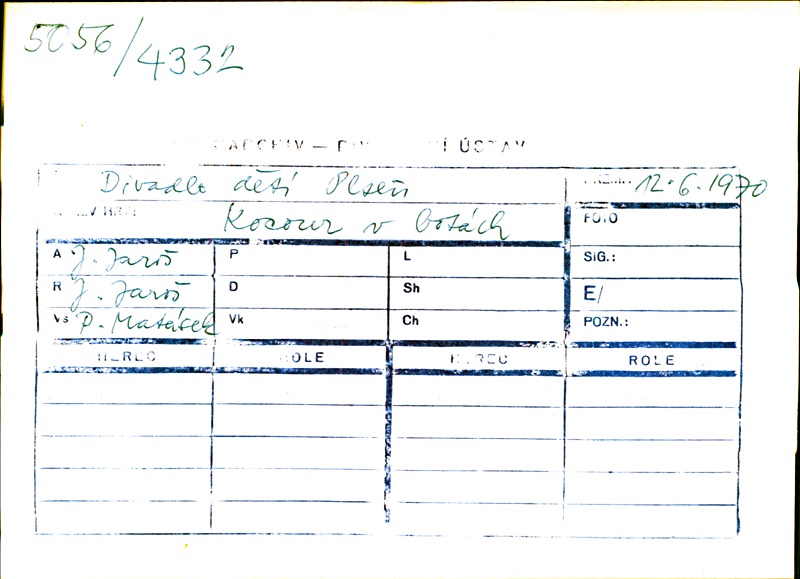 5056/4332
ARCHIV — DIV ÍÚSTAV
Divadlo dětí Plzeň 12.6.1970
Kocour v botách FOTO
A J. Jaroš P L SiG.:
R J. Jaroš D Sh E/
Vs P. Matásek Vk Ch POZN.:
HEREC ROLE HEREC ROLE